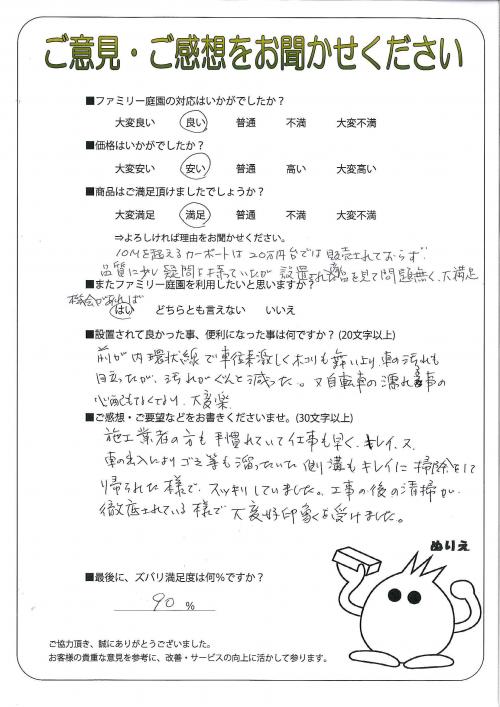 ご意見・ご感想をお聞かせください
■ファミリー庭園の対応はいかがでしたか？
大変良い 良い 普通 不満 大変不満
■価格はいかがでしたか？
大変安い 安い 普通 高い 大変高い
■商品はご満足頂けましたでしょうか？
大変満足 満足 普通 不満 大変不満
⇒よろしければ理由をお聞かせください。
10Mを超えるカーポートは20万円台では販売されておらず
品質に少し疑問を持っていたが設置された商品を見て問題無く、大満足
■またファミリー庭園を利用したいと思いますか？
機会があれば
はい どちらとも言えない いいえ
■設置されて良かった事、便利になった事は何ですか？(20文字以上)
前が内環状線で車往来激しくホコリも舞いより車の汚れも
目立ったが、汚れがぐんと減った。又自転車の濡れる事の
心配もなくなり、大変楽
■ご感想・ご要望などをお書きくださいませ。(30文字以上)
施工業者の方も手慣れていて仕事も早く、キレイ、又
車の出入によりゴミ等も溜っていた側溝もキレイに掃除をして
帰られた様で、スッキリしていました。工事の後の清掃が
徹底されている様で大変好印象を受けました。
ぬりえ
■最後に、ズバリ満足度は何%ですか？
90 %
ご協力頂き、誠にありがとうございました。
お客様の貴重な意見を参考に、改善・サービスの向上に活かして参ります。